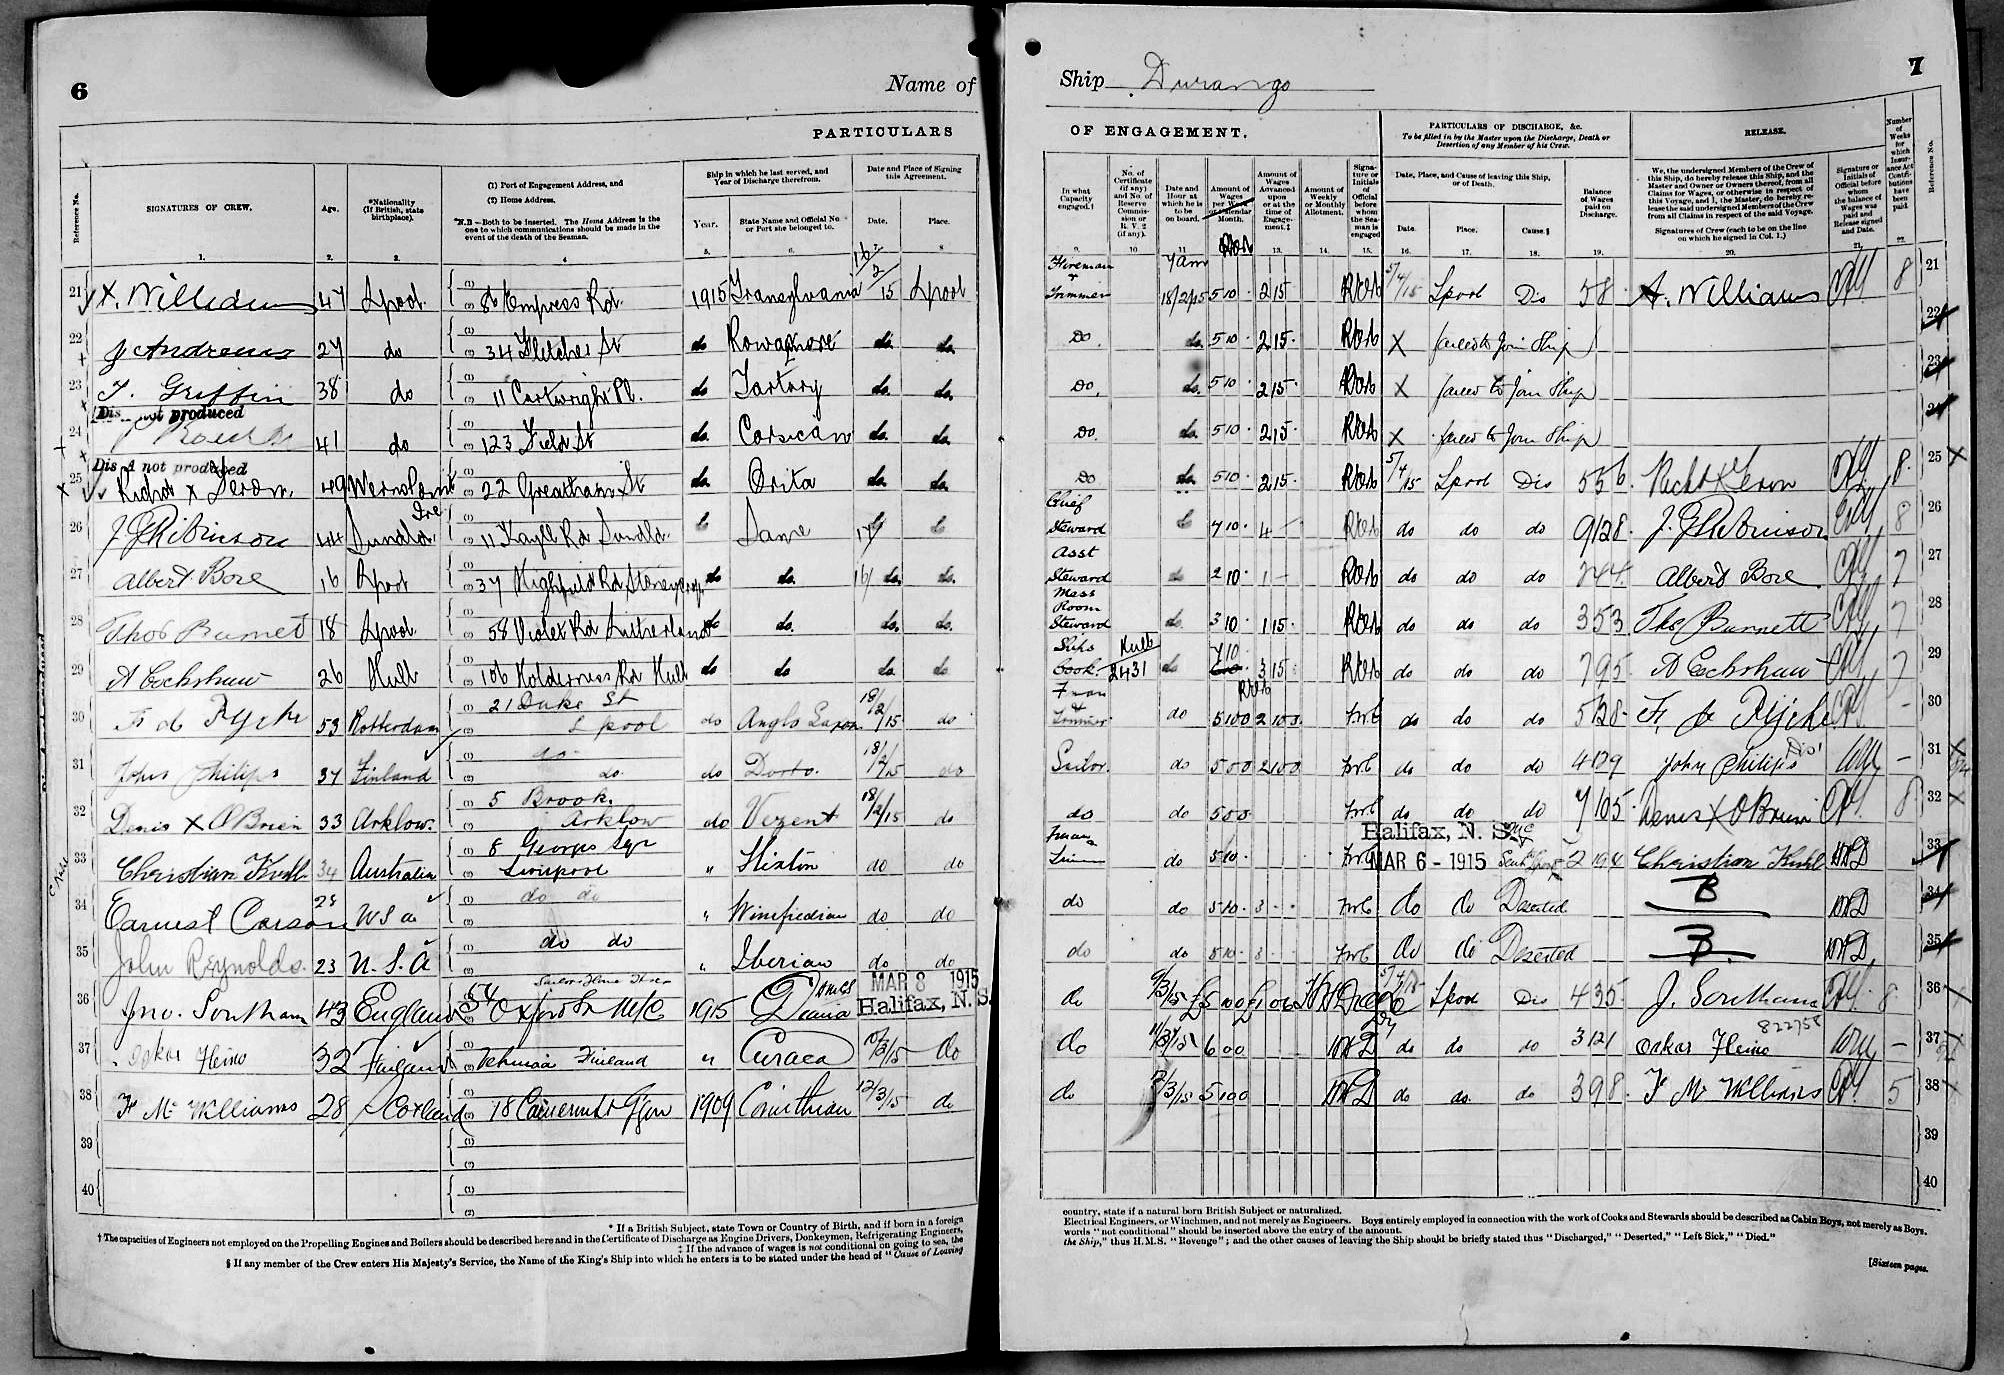 6
Name of
PARTICULARS
Reference No.
SIGNATURES OF CREW.
Age.
*Nationality
(If British, state
birthplace).
(1) Port of Engagement Address, and
(2) Home Address.
*N.B—Both to be inserted. The Home Address is the
one to which communications should be made in the
event of the death of the Seaman.
Ship in which he last served, and
Year of Discharge therefrom.
Year.
State Name and Official No
or Port she belonged to.
Date and Place of Signing
this Agreement.
Date.
Place.
1. 2. 3. 4 5. 6. 8
21 A. Williams 47 Lpool 86 Empress Rd. 1915 Transylvania 16/2/15 Lpool
22 J Andrews 27 do 34 Fletcher St do Rowanmore do. do.
23 T. Griffin 38 do 11 Cartwright Pl. do Tartary do. do.
Dis not produced
24 41 do 123 Field St do. Corsican do. do.
Dis A not produced
25 Richd x 49 22 Greatham St do. Orita do. do.
26 J G Robinson 44 Sundld. 11 Kayll Rd Sundld. Same
27 Albert Bore 16 Lpool 37 Highfield Rd Stoneycroft do do. 16/ do. do.
28 Thos Burnett 18 Lpool 58 Violet Rd Litherland do do. do. do.
29 A Cockshaw 26 Hull 106 Holderness Rd Hull do do do. do
30 53 Rotterdam 21 Duke St
L pool do Anglo Saxon 18/2/15 do
31 John Philips 37 Finland do
do. do Dorto. 18/2/15 do
32 Denis X O'Brien 33 Arklow. 5 Brook.
Arklow do 18/2/15 do
33 Christian Kuhl 34 Australia 8 Georges Sqr
Liverpool " Hixton do do
34 Earnest Carson 28 U S a do do " Winifredian do do
35 John Reynolds. 23 U. S. A do do " Iberian do do
MAR 8 1915
Halifax, N. S.
36 Jno. Southam 43 England 54 Oxford St M/C 1915 Diana
37 Oskar Heino 32 Finland Finland " Curaca 10/3/15 do
38 F Mc Williams 28 Scotland 1909 Corinthian 12/3/15 do.
39
40
* If a British Subject, state Town or Country of Birth, and if born in a foreign
† The capacities of Engineers not employed on the Propelling Engines and Boilers should be described here and in the Certificate of Discharge as Engine Drivers, Donkeymen, Refrigerating Engineers,
‡ If the advance of wages is not conditional on going to sea, the
§ If any member of the Crew enters His Majesty's Service, the Name of the King's Ship into which he enters is to be stated under the head of "Cause of Leaving
7
Ship Durango
OF ENGAGEMENT.
PARTICULARS OF DISCHARGE, &c.
To be filled in by the Master upon the Discharge, Death or
Desertion of any Member of his Crew.
RELEASE.
In what
Capacity
engaged.†
No. of
Certificate
(if any)
and No. of
Reserve
Commis-
sion or
R. V. 2
(if any).
Date and
Hour at
which he is
to be
on board.
Amount of
Wages
per Week
or Calendar
Month.
Amount of
Wages
Advanced
upon
or at the
time of
Engage-
ment.‡
Amount of
Weekly
or Monthly
Allotment.
Signa-
ture or
Initials
of
Official
before
whom
the Sea-
man is
engaged
Date, Place, and Cause of leaving this Ship,
or of Death.
Date.
Place.
Cause.§
Balance
of Wages
paid on
Discharge.
We, the undersigned Members of the Crew of
this Ship, do hereby release this Ship, and the
Master and Owner or Owners thereof, from all
Claims for Wages, or otherwise in respect of
this Voyage, and I, the Master, do hereby re-
lease the said undersigned Members of the Crew
from all Claims in respect of the said Voyage.
Signatures of Crew (each to be on the line
on which he signed in Col. 1.)
Signature or
Initials of
Official before
whom
the balance of
Wages was
paid and
Release signed
and Date.
Number
of
Weeks
for
which
Insur-
ance Act
Contri-
butions
have
been
paid
Reference No.
9. 10 11 13. 14. 15. 16. 17. 18. 19. 20. 21. 22.
Fireman
+
Trimmer 7 am
18/2/15 5 10 2 15 5/4/15 Lpool Dis 58 A. Williams 8 21
Do. do. 5 10 2 15 X failed to join Ship 22
Do. do. 5 10 2 15 X failed to join Ship 23
Do. do. 5 10 2 15 X failed to join Ship 24
Do do. 5 10 2 15 5/4/15 Lpool Dis 5 5 6 8 25
Chief
Steward 7 10 4 do do do 9 12 8 J. G Robinson 8 26
Asst
Steward do 2 10 1 do do do 2 4 4 Albert Bore 7 27
Mess
Room
Steward do. 3 10 1 15 do do do 3 5 3 Tho Burnett 7 28
Ships
Cook. Hull
2431 do 7 10 3 15 do do do 7 9 5 A Cockshaw 7 29
do 5 10 0 2 10 0 do do do 5 12 8 30
Sailor. do 5 0 0 2 0 0 do do do 4 17 9 John Philips 31
do do 5 0 0 do do do 7 10 5 Denis X O'Brien 8 32
Halifax, N. S.
MAR 6 - 1915
do 5 10 Christian Kuhl 33
do do 5 10 3 do do Deserted 34
do do 5 10 3 do do Deserted 35
do 9/3/15 Lpool Dis 4 3 5 J. Southam 8 36
do 6 0 0 do do do 3 12 1 Oskar Heino 822758 37
do 5 10 0 do do. do 3 9 8 F Mc Williams 5 38
39
40
country, state if a natural born British Subject or naturalized.
Electrical Engineers, or Winchmen, and not merely as Engineers. Boys entirely employed in connection with the work of Cooks and Stewards should be described as Cabin Boys, not merely as Boys.
words "not conditional" should be inserted above the entry of the amount.
the Ship," thus H.M.S. "Revenge"; and the other causes of leaving the Ship should be briefly stated thus "Discharged," "Deserted," "Left Sick," "Died."
[Sixteen pages.